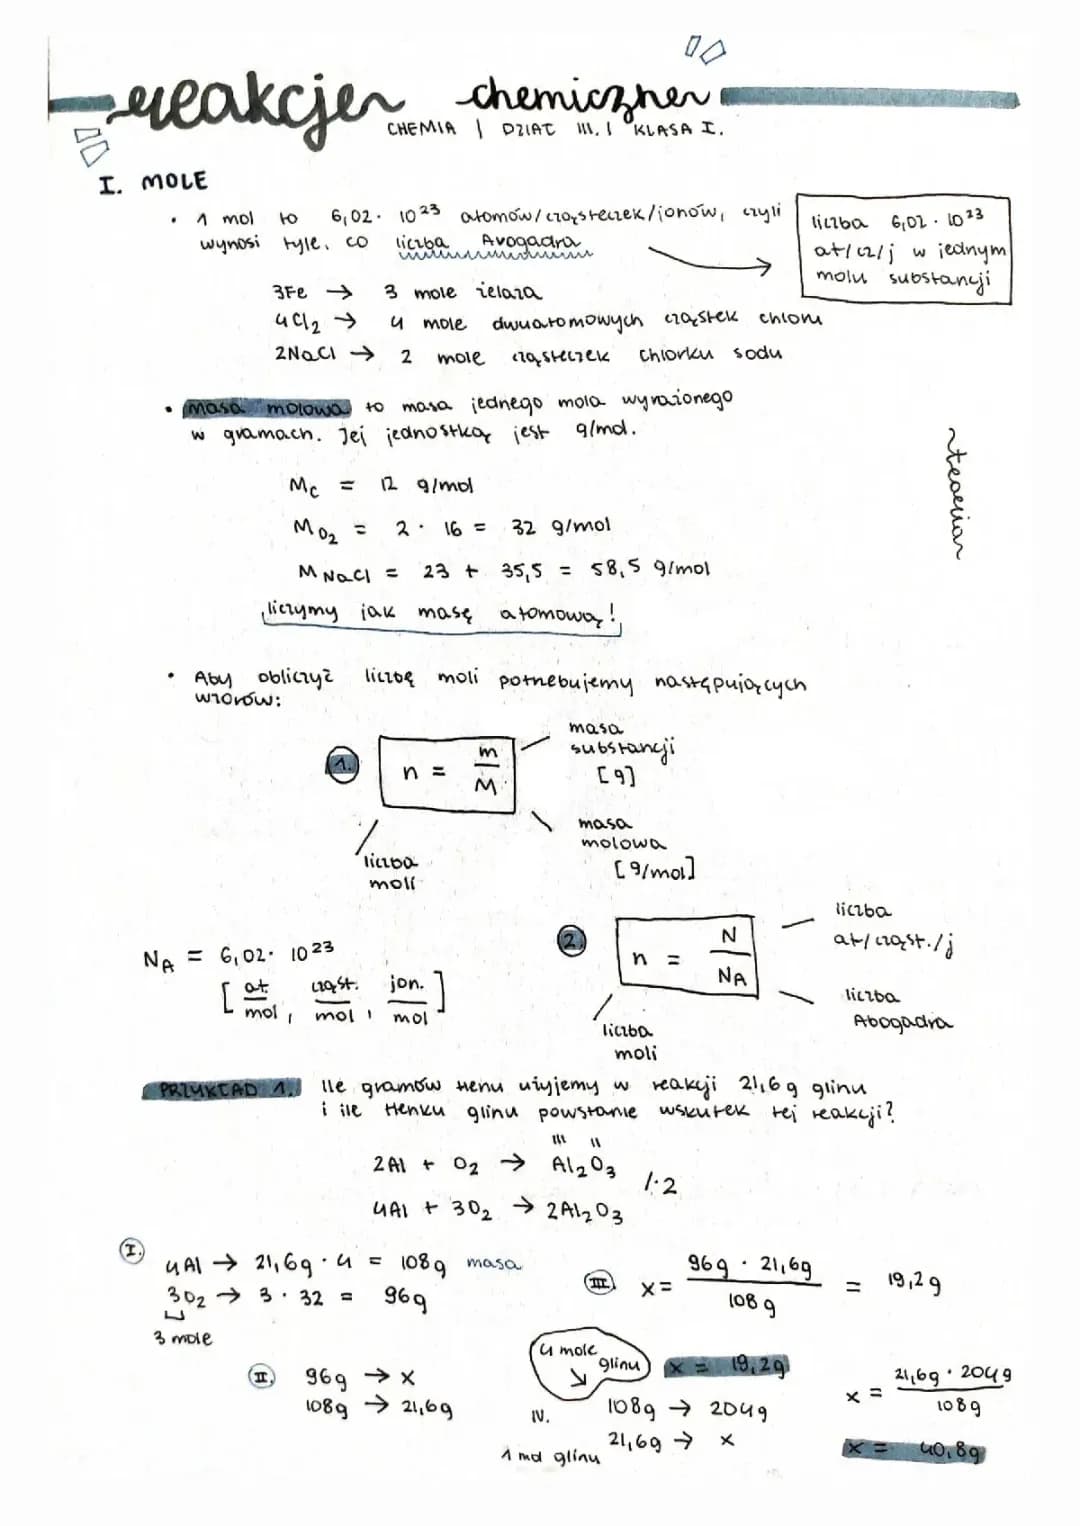 reakcje chemiczne
CHEMIA | DZIAŁ III. | KLASA I.
I. MOLE
• 1 mol to 6,02 · 10²³ atomów/cząsteczek/jonów, czyli
wynosi tyle, co liczba Avogadra
liczba 6,02 · 10²³
at/cz/j w jednym
molu substancji
3Fe → 3 mole żelaza
4Cl₂ → 4 mole dwuatomowych cząstek chloru
2NaCl → 2 mole cząsteczek chlorku sodu
• masa molowa to masa jednego mola wyrażonego
w gramach. Jej jednostką jest g/mol.
teoria
M_C = 12 g/mol
M_O₂ = 2 · 16 = 32 g/mol
M_NaCl = 23 + 35,5 = 58,5 g/mol
liczymy jak masę atomową!
• Aby obliczyć liczbę moli potrzebujemy następujących
wzorów:
1. n = m/M
masa
substancji
[g]
masa
molowa
[g/mol]
liczba
moli
N_A = 6,02 · 10²³
[at./mol, cząst./mol, jon./mol]
2. n = N/N_A
liczba
at/cząst./j
liczba
Abogadra
liczba
moli
PRZYKŁAD 1. Ile gramów tlenu użyjemy w reakcji 21,6g glinu
i ile tlenku glinu powstanie wskutek tej reakcji?
III II
2Al + O₂ → Al₂O₃ /·2
4Al + 3O₂ → 2Al₂O₃
I.
4Al → 21,6g · 4 = 108g masa
3O₂ → 3 · 32 = 96g
3 mole
II. 96g → x
108g → 21,6g
III. x = 96g · 21,6g / 108g = 19,2g
x = 19,2g
4 mole
glinu
IV. 108g → 204g
21,6g → x
1 mol glinu
x = 21,6g · 204g / 108g
x = 40,8g